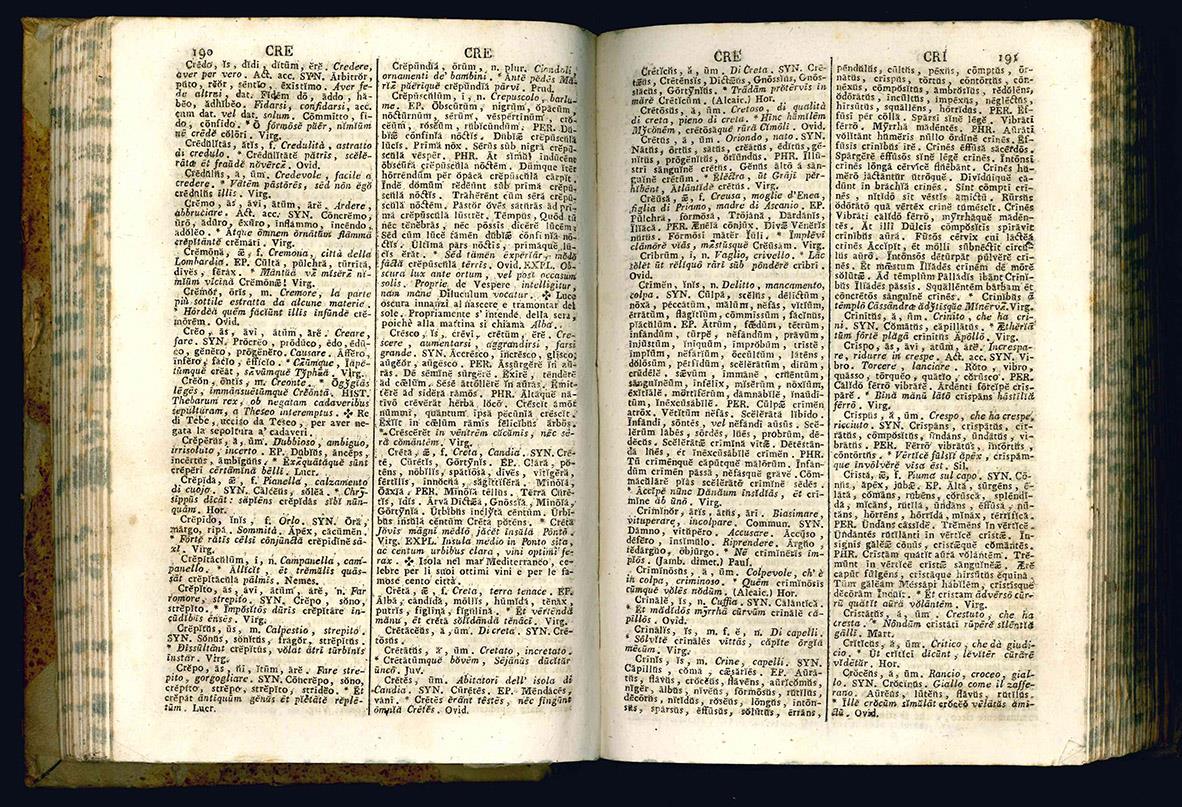 190 CRE CRE
Crēdo, ĭs, dĭdi, dĭtum, ĕrĕ. Credere,
aver per vero. Act. acc. SYN. Arbĭtrŏr,
pŭto, rĕŏr, sēntĭo, ēxīstĭmo. Aver fe-
de altrui, dat. Fĭdēm dō, āddo, hă-
bĕo, ădhĭbĕo. Fidarsi, confidarsi, acc.
cum dat. vel dat. solum. Cōmmītto, fī-
do, cōnfīdo. * Ō fōrmōsĕ pŭĕr, nĭmĭŭm
nē crēdĕ cŏlōri. Virg.
Crēdŭlĭtās, ātĭs, f. Credulità, astratto
di credulo. * Crēdŭlĭtātĕ pătris, scĕlĕ-
rātæ ĕt fraudĕ nŏvērcæ. Ovid.
Crēdŭlŭs, ă, ŭm. Credevole, facile a
credere. * Vātēm pāstōrēs, sēd nōn ĕgŏ
crēdŭlŭs illis. Virg.
Crĕmo, ās, āvi, ātum, ārĕ. Ardere,
abbruciare. Act. acc. SYN. Cōncrĕmo,
ūrō, ădūro, ēxūro, inflammo, incēndo,
ădŏlĕo. * Atque ōmnem ōrnātum flāmmā
crĕpĭtāntĕ crĕmāri. Virg.
Crĕmōnă, æ, f. Cremona, città della
Lombardia. EP. Cūltă, pūlchră, tūrrĭtă,
dīvĕs, fĕrāx. * Māntŭă væ mĭsĕræ nĭ-
mĭŭm vīcīnă Crĕmōnæ! Virg.
Crĕmŏr, ōris, m. Cremore, la parte
più sottile estratta da alcune materie.
* Hōrdĕă quēm făcĭŭnt illis infūsă crĕ-
mōrēm. Ovid.
Crĕo, ās, āvi, ātum, ārĕ. Creare,
fare. SYN. Prōcrĕo, prŏdūco, ēdo, ēdū-
co, gĕnĕro, prōgĕnĕro. Causare. Āffĕro,
infĕro, făcĭo, ēffĭcĭo. * Cæumque, Iăpĕ-
tūmquĕ crĕăt, sævūmquĕ Tўphœa. Virg.
Crĕōn, ōntis, m. Creonte. * Ōgўgĭăs
lēgēs, immānsuētūmquĕ Crĕōntă. HIST.
Thebarum rex, ob negatam cadaveribus
sepulturam, a Theseo interemptus. ✣ Re
di Tebe, ucciso da Teseo, per aver ne-
gata la sepoltura a' cadaveri.
Crĕpĕrŭs, ă, ŭm. Dubbioso, ambiguo,
irrisoluto, incerto. EP. Dŭbĭŭs, ancēps,
incērtŭs, āmbĭgŭŭs. * Ēxæquātăquĕ sūnt
crĕpĕri cērtāmĭnă bēlli. Lucr.
Crĕpĭdă, æ, f. Pianella, calzamento
di cuojo. SYN. Cālcĕŭs, sŏlĕă. * Chrȳ-
sippūs dīcit: sāpĭēns crĕpĭdās sĭbĭ nūn-
quam. Hor.
Crĕpīdo, ĭnis, f. Orlo. SYN. Ōră,
mārgo, rīpă. Sommità. Ăpēx, căcūmĕn.
* Fōrtĕ rătis cēlsi cōnjūnctă crĕpīdĭnĕ sā-
xi. Virg.
Crĕpĭtācŭlum, i, n. Campanella, cam-
panello. * Āllĭcit, ĕt trĕmŭlis quāss-
āt crĕpĭtācŭlă pālmis. Nemes.
Crĕpĭto, ās, āvi, ātum, ārĕ, n. Far
romore, strepito. SYN. Crĕpo, sŏno,
strĕpĭto. * Impŏsĭtōs dūris crĕpĭtārĕ in-
cūdĭbŭs ēnsēs. Virg.
Crĕpĭtŭs, ūs, m. Calpestio, strepito.
SYN. Sŏnŭs, sŏnĭtŭs, frăgŏr, strĕpĭtŭs.
* Dīssŭltānt crĕpĭtŭs, vŏlăt ātri tūrbĭnis
instar. Virg.
Crĕpo, ās, ŭi, ĭtum, ārĕ. Fare stre-
pito, gorgogliare. SYN. Cōncrĕpo, sŏno,
crĕpĭto, strĕpo, strĕpĭto, strīdĕo. * Ĕt
crĕpăt āntīquūm gĕnŭs ĕt pĭĕtātĕ replē-
tum. Lucr.
Crĕpūndĭă, ōrŭm, n. plur. Ciondoli,
ornamenti de' bambini. * Āntĕ pĕdēs Mă-
rĭæ pŭĕrīquĕ crĕpūndĭă pārvi. Prud.
Crĕpūscŭlŭm, i, n. Crepuscolo, barlu-
me. EP. Ōbscūrŭm, nĭgrŭm, ŏpācŭm,
nōctūrnŭm, sērŭm, vĕspertīnŭm, crŏ-
cĕŭm, rŏsĕŭm, rŭbicūndŭm. PER. Dŭ-
bĭæ cōnfīnĭă nōctis. Dŭbĭæ crĕpūscŭlă
lūcis. Prīmă nōx. Sērŭs sūb nĭgră crĕpū-
scŭlă vēspĕr. PHR. Āt sĭmŭl indūcēnt
ōbscūră crĕpūscŭlă nōctĕm. Dūmque ĭtĕr
hōrrēndŭm pĕr ŏpācă crĕpūscŭlă cārpit.
Īndĕ dŏmŭm rĕdĕŭnt sūb prīmă crĕpū-
scŭlă nōctis. Trăhĕrĕnt cŭm sēră crĕpū-
scŭlă nōctĕm. Pāstŏr ŏvēs sătŭrās ăd prī-
mă crĕpūscŭlă lūstrĕt. Tēmpŭs, Quŏd tŭ
nĕc tĕnĕbrās, nĕc pōssis dīcĕrĕ lūcĕm:
Sĕd cŭm lūcĕ tămĕn dŭbĭæ cōnfīnĭă nō-
ctis. Ūltĭmă pārs nōctis, prīmăquĕ lū-
cis ĕrăt. * Sĕd tămĕn ēxpĕriăr, mŏdŏ
făctă crĕpūscŭlă tērris. Ovid. EXPL. Ob-
scura lux ante ortum, vel post occasum
solis. Proprie de Vespere intelligitur,
nam mane Diluculum vocatur. ✣ Luce
oscura innanzi al nascere e tramontar del
sole. Propriamente s' intende della sera,
poichè alla mattina si chiama Alba.
Crēsco, ĭs, crēvi, crētŭm, ĕrĕ. Cre-
scere, aumentarsi, aggrandirsi, farsi
grande. SYN. Āccrēsco, incrēsco, glīsco,
augĕŏr, augēsco. PER. Āssūrgĕrĕ in au-
rās. Dē sēmĭnĕ sūrgĕrĕ. Ēxīrĕ, tēndĕrĕ
ăd cælŭm. Sēsĕ āttōllĕrĕ in aurās. Ēmit-
tĕrĕ ăd sīdĕră rāmōs. PHR. Āltăquĕ nă-
tīvō crēvĕrăt hērbă lŏcō. Crēscit ămŏr
nūmmi, quāntŭm ipsă pĕcūnĭă crēscit.
Ēxiĭt in cœlŭm rāmis fēlīcĭbŭs ārbŏs.
* Crēscĕrĕt in vēntrēm cŭcŭmis, nĕc sē-
ră cŏmāntĕm. Virg.
Crētă, æ, f. Creta, Candia. SYN. Crē-
tē, Cūrētis, Gōrtўnis. EP. Clāră, pŏ-
tēns, nōbĭlis, spătĭōsă, dīvĕs, vītĭgĕră,
fērtĭlis, innŏcŭă, săgĭttĭfĕră. Mīnōĭă,
Ōaxiă. PER. Mīnōĭă tēllūs. Tērră Cūrē-
tis, Īdĭs. Ārvă Dīctæă, Gnōssĭă, Mīnōĭă.
Gōrtўnĭă. Ūrbĭbŭs inclўtă cēntŭm. Ūrbĭ-
bŭs īnsŭlă cēntŭm Crētă pŏtēns. * Crētă
Jŏvis māgni mĕdĭō, jăcĕt īnsŭlă Pōntō.
Virg. EXPL. Insula medio in Ponto sita,
ac centum urbibus clara, vini optimi fe-
rax. ✣ Isola nel mar Mediterraneo, ce-
lebre per li suoi ottimi vini e per le fa-
mose cento città.
Crētă, æ, f. Creta, terra tenace. EP.
Ālbă, cāndĭdă, mōllis, hūmĭdă, tĕnāx,
pūtris, fĭglīnă, fĭgūlīnă. * Ĕt vĕrtēndă
mănu, ĕt crētā sŏlĭdāndă tĕnāci. Virg.
Crētācĕŭs, ă, ŭm. Di creta. SYN. Crē-
tōsŭs.
Crētātŭs, ă, ŭm. Cretato, incretato.
* Crētātūmquĕ bŏvĕm, Sējānŭs dūcĭtŭr
ūncō. Juv.
Crētēs, ŭm. Abitatori dell' isola di
Candia. SYN. Cūrētĕs. EP. Mēndācĕs,
vāni. * Crētĕs ĕrŭnt tēstĕs, nĕc fīngŭnt
ōmnĭă Crētĕs. Ovid.
CRE CRI 191
Crētĭcŭs, ă, ŭm. Di Creta. SYN. Crē-
tæŭs, Crētēnsis, Dīctæŭs, Gnōssĭŭs, Gnōs-
sĭăcŭs, Gōrtўnĭŭs. * Trādăm prŏtērvis in
mărĕ Crētĭcŭm. (Alcaic.) Hor.
Crētōsŭs, ă, ŭm. Cretoso, di qualità
di creta, pieno di creta. * Hīnc hŭmĭlĕm
Mўcŏnĕm, crētōsăquĕ rūră Cĭmōli. Ovid.
Crētŭs, ă, ŭm. Oriondo, nato. SYN.
Nātŭs, ōrtŭs, sătŭs, crĕātŭs, ēdĭtŭs, gĕ-
nĭtŭs, prōgĕnĭtŭs, ŏrĭūndŭs. PHR. Illū-
stri sānguĭnĕ crētŭm. Gĕnŭs āltō ă sān-
guĭnĕ crētŭm. * Ēlēctrā, ŭt Grāji pĕr-
hĭbēnt, Ātlāntĭdĕ crētŭs. Virg.
Crĕūsă, æ, f. Creusa, moglie d'Enea,
figlia di Priamo, madre di Ascanio. EP.
Pūlchră, fōrmōsă, Trōjānă, Dārdănis,
Īlĭăcă. PER. Ænēĭă cōnjūx. Dīvæ Vĕnĕris
nŭrŭs. Fōrmōsi mātĕr Iŭli. * Implēvi
clāmōrĕ viās, mœstūsquĕ Crĕūsam. Virg.
Crībrum, i, n. Vaglio, crivello. * Lāc
sŏlĕt ŭt rĕlĭquō rāri sŭb pōndĕrĕ crībri.
Ovid.
Crīmĕn, ĭnis, n. Delitto, mancamento,
colpa. SYN. Cūlpă, scĕlŭs, dēlīctŭm,
nōxă, pĕccātŭm, mălŭm, nĕfās, vĭtĭŭm,
ērrātŭm, flāgĭtĭŭm, cōmmīssŭm, făcĭnŭs,
pĭācŭlŭm. EP. Ātrŭm, fœdŭm, tētrŭm,
infāndŭm, tūrpĕ, nĕfāndŭm, prāvŭm,
injūstŭm, inīquŭm, imprŏbŭm, trīstĕ,
impĭŭm, nĕfārĭŭm, ōccūltŭm, lătēns,
dŏlōsŭm, pērfĭdŭm, scĕlĕrātŭm, dīrŭm,
crūdēlĕ. sævŭm, immānĕ, crŭēntŭm,
sānguĭnĕŭm, infēlix, mĭsĕrŭm, nōxĭŭm,
ēxĭtĭālĕ, mōrtĭfĕrŭm, dāmnābĭlĕ, inaudi-
tŭm, inēxcūsābĭlĕ. PER. Cūlpæ crīmĕn
ătrōx. Vĕtĭtŭm nĕfās. Scĕlĕrātă lĭbīdo.
Infāndi, sōntĕs, vĕl nĕfāndi ausŭs. Scĕ-
lĕrŭm lābĕs, sōrdĕs, lŭĕs, prōbrŭm, dē-
dĕcŭs. Scĕlĕrātæ crīmĭnă vītæ. Dētēstān-
dă lŭĕs, ĕt inēxcūsābĭlĕ crīmĕn. PHR.
Tŭ crīmĕnquĕ căpūtquĕ mălōrŭm. Infān-
dŭm crīmĕn pāssă, nĕfāsquĕ grăvĕ. Cōm-
măcŭlārĕ pĭās scĕlĕrātō crīmĭnĕ sēdĕs.
* Āccĭpĕ nūnc Dănăŭm insĭdĭās, ĕt crī-
mĭnĕ ăb ūnō. Virg.
Crīmĭnŏr, āris, ātŭs, āri. Biasimare,
vituperare, incolpare. Commun. SYN.
Dāmno, vĭtŭpĕro. Accusare. Āccūso,
dēfĕro, insĭmŭlo. Riprendere. Ārgŭo,
rĕdārgŭo, ōbjūrgo. * Nĕ crīmĭnēmŭs im-
pĭōs. (Jamb. dimet.) Paul.
Crīmĭnōsŭs, ă, ŭm. Colpevole, ch'è
in colpa, criminoso. * Quĕm crīmĭnōsis
cŭmquĕ vŏlĕs mŏdŭm. (Alcaic.) Hor.
Crīnālĕ, is, n. Cuffia. SYN. Călāntĭcă.
* Ĕt mădĭdōs mўrrhā cūrvŭm crīnālĕ că-
pĭllōs. Ovid.
Crīnālis, is, m. f. ĕ, n. Di capelli.
* Sōlvĭtĕ crīnālĕs vīttās, căpĭtĕ ōrgĭă
mēcum. Virg.
Crīnis, is, m. Crine, capelli. SYN.
Căpīllŭs, cŏmă, cæsărĭēs. EP. Aurā-
tŭs, flāvŭs, crŏcĕŭs, flāvēns, aurĭcŏmŭs,
nĭgĕr, ālbŭs, nĭvĕŭs, fōrmōsŭs, rŭtĭlŭs,
dĕcōrŭs, nĭtĭdŭs, rŏsĕŭs, lōngŭs, intōn-
sŭs, spārsŭs, ēffūsŭs, sŏlūtŭs, ērrāns,
pēndŭlŭs, cūltŭs, pēxŭs, cōmptŭs, ōr-
nātŭs, crīspŭs, tōrtŭs, cōntōrtŭs, cōn-
nēxŭs, cōmpŏsĭtŭs, āmbrŏsĭŭs, rĕdŏlēns,
ŏdōrātŭs, incūltŭs, impēxŭs, nēglēctŭs,
hirsūtŭs, squālēns, hōrrĭdŭs. PER. Ef-
fūsi pĕr cōllă. Spārsi sĭnĕ lēgĕ. Vibrāti
fērrō. Mўrrhā mădēntĕs. PHR. Aurāti
vŏlĭtānt hŭmĕris nūllo ōrdĭnĕ crīnĕs. Ef-
fūsis crīnĭbŭs irĕ. Crīnēs ēffūsă săcērdōs.
Spārgĕrĕ ēffūsōs sĭnĕ lēgĕ crīnĕs. Intōnsi
crīnĕs lōngā cērvīcĕ flŭēbānt. Crīnĕs hŭ-
mĕrō jāctāntŭr ŭtrōquĕ. Dīvĭdŭīquĕ că-
dŭnt in brāchĭă crīnĕs. Sint cōmpti crī-
nĕs, nĭtĭdō sit vēstis ămīctŭ. Rūrsŭs
ŏdōrātō quă vērtĕx crīnĕ tŭmēscĕt. Crīnēs
Vibrāti călĭdō fērrō, mўrrhāquĕ mădĕn-
tĕs. Āt illi Dūlcis cōmpŏsĭtis spīrāvit
crīnĭbŭs aură. Fūsōs cērvix cui lāctĕă
crīnĕs Āccĭpit, ĕt mōlli sŭbnēctit circŭ-
lŭs aurō. Intōnsōs dētūrpăt pūlvĕrĕ crī-
nĕs. Ĕt mæstŭm Īlĭădĕs crīnēm dē mōrĕ
sŏlūtæ. Ăd tēmplŭm Pāllădis ībānt Crīnĭ-
bŭs Īlĭădĕs pāssis. Squālēntĕm bārbam ĕt
cōncrētōs sānguĭnĕ crīnĕs. * Crīnĭbŭs ă
tēmplō Cāssāndra ădўtīsquĕ Mĭnērvæ. Virg.
Crīnītŭs, ă, ŭm. Crinito, che ha cri-
ni. SYN. Cŏmātŭs, căpīllātŭs. * Æthĕrĭā
tŭm fōrtĕ plăgā crīnītŭs Ăpōllo. Virg.
Crīspo, ās, āvi, ātum, ārĕ. Increspa-
re, ridurre in crespe. Act. acc. SYN. Vi-
bro. Torcere, lanciare. Rŏto, vibro,
quāsso, tōrquĕo, quătĭo, cŏrūsco. PER.
Călĭdō fērrō vibrārĕ. Ārdēnti fōrcĭpĕ crispā-
rĕ. * Bīnă mănŭ lātō crispāns hāstīlĭă
fērrō. Virg.
Crīspŭs, ă, ŭm. Crespo, che ha crespe,
ricciuto. SYN. Crīspāns, crīspātŭs, cir-
rātŭs, cōmpŏsĭtŭs, ūndāns, ūndātŭs, vi-
brātŭs. PER. Fērrō vibrātŭs, intōrtŭs,
cōntōrtŭs. * Vērtĭcĕ fūlsĭt ăpēx, crīspām-
que invōlvĕrĕ vīsa ĕst. Sil.
Crīstă, æ, f. Piuma sul capo. SYN. Cō-
nŭs, ăpēx, jŭbæ. EP. Āltă, sūrgēns, ē-
lātă, cŏmāns, rŭbēns, cŏrūscă, splēndĭ-
dă, mĭcāns, rŭtĭlă, ūndāns, ēffūsă, nŭ-
tāns, hōrrēns, hōrrĭdă, mĭnāx, tērrĭfĭcă.
PER. Ūndāns cāssĭdĕ. Trĕmēns in vērtĭcĕ.
Ūndāntĕs rŭtĭlānti in vērtĭcĕ crīstæ. In-
signis gălĕæ cōnŭs, crīstæquĕ cŏmāntĕs.
PHR. Crīstam quătĭt aură vŏlāntĕm. Trĕ-
mŭnt in vērtĭcĕ crīstæ sānguĭnĕæ. Ærĕ
căpŭt fūlgēns, crīstāquĕ hirsūtŭs ĕquīnā.
Tŭm gălĕam Mēssāpi hăbĭlĕm, crīstīsquĕ
dĕcōrăm Indŭit. * Ĕt cristam ădvērsō cūr-
rŭ quătĭt aură vŏlāntĕm. Virg.
Crīstātŭs, ă, ŭm. Crestuto, che ha
cresta. * Nōndŭm crīstāti rūpērĕ sĭlēntĭă
gălli. Mart.
Crĭtĭcŭs, ă, ŭm. Critico, che dà giudi-
cio. * Ŭt crĭtĭci dīcŭnt, lĕvĭtĕr cūrārĕ
vĭdētŭr. Hor.
Crŏcĕŭs, ă, ŭm. Rancio, croceo, gial-
lo. SYN. Crŏcĭnŭs. Giallo come il zaffe-
rano. Aurĕŭs, lūtĕŭs, flāvŭs, rŭtĭlŭs.
* Ille crŏcŭm sĭmŭlăt crŏcĕō vēlātŭs ămī-
ctŭ. Ovid.